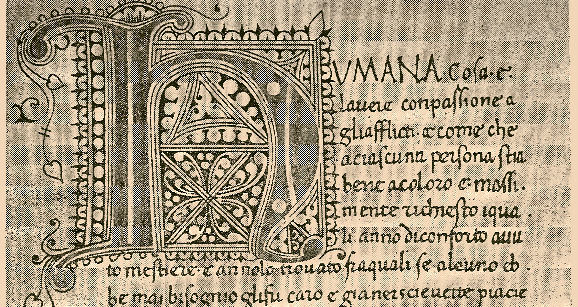 HVMANA Cosa. e.
lauere conpassione a
gliafflicti. e come che
aciascuna persona stia
bene acoloro e. massi.
mente richiesto iqua
li. anno diconforto auu
to mestiere. e annolo trouato fraquali se alcuno eb
be mai bisogno glifu caro e gianericieuette piacie